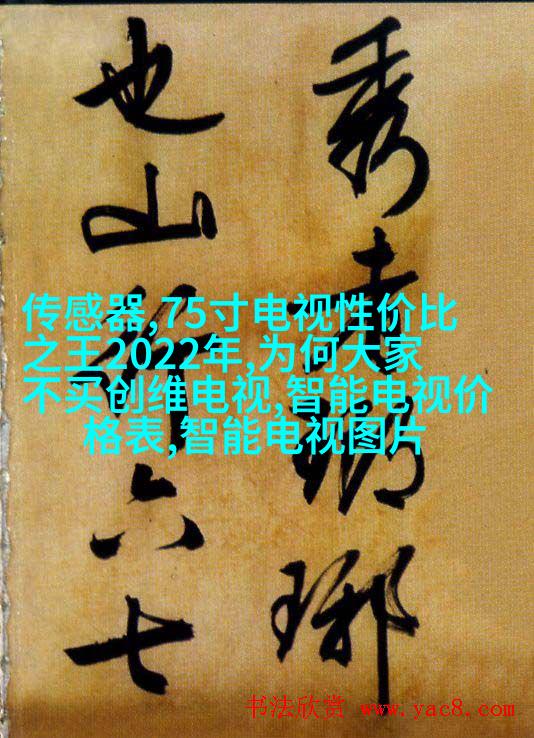 秀者瑯琊
也山行六七
传感器,75寸电视性价比
之王2022年,为何大家
不买创维电视,智能电视价
格表,智能电视图片
书法欣赏 www.yac8.com